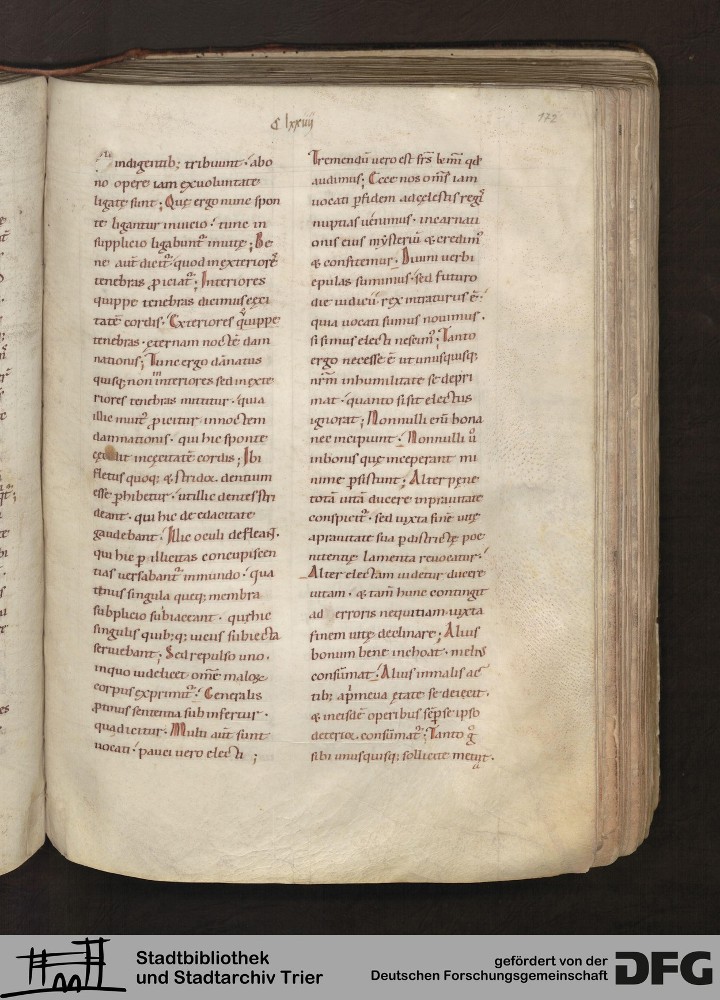 C lxxviij
172
indigentib; tribuunt · a bo
no opere iam ex voluntate
ligatę sunt ; Quę ergo nunc spon
te ligantur in uicio · tunc in
supplicio ligabunt᷑ inuitę ; Be
ne aut̄ dicit᷑ · quod in exteriorẽ
tenebras ꝓiciat᷑ ; Interiores
quippe tenebras dicimus cęci
tatē cordis · Exteriores quippe
tenebras · ęternam noctē dam
nationis ; Tunc ergo dānatus
quisq; non in interiores sed in exte
riores tenebras mittitur · quia
illic inuit᷑ proicitur in noctem
damnationis · qui hic sponte
in cęcitatē cordis ; Ibi
fletus quoq; & stridor dentium
esse ꝑhibetur · ut illic dentes stri
deant · qui hic de edacitate
gaudebant · Illic oculi defleant ·
qui hic ꝑ illicitas concupiscen
tias uersabant᷑ in mundo · qua
tinus singula queq; membra
subplicio subiaceant · quę hic
singulis quib;q; uiciis subiecta
seruiebant ; Sed repulso uno ·
in quo uidelicet omē malorum
corpus exprimit᷑ · Generalis
ꝓtinus sententia subinfertur ·
qua dicitur · Multi aut̄ sunt
uocati · pauci uero electi ;
Tremendū uero est frs̄ kmi̅ qd̄
audimus ; Ecce nos om̄s iam
uocati ꝑ fidem ad cęlestis regis
nuptias uenimus · incarnati
onis eius mysteriū & credim᷒
& confitemur · Diuini uerbi
epulas sumimus · sed futuro
die iudicii rex intraturus ē ·
quia uocati sumus nouimus ·
si simus electi nescim᷒ ; Tanto
ergo necesse ē ut unusquisq;
nr̄m in humilitate se depri
mat · quanto si sit electus
ignorat ; Nonnulli enī bona
nec incipiunt · Nonnulli ů
in bonis quę inceperant mi
nime ꝑsistunt ; Alter pęne
totā uitā ducere in prauitate
conspicit᷑ · sed iuxta finē uitę
a prauitate sua ꝑ districtę poe
nitentię lamenta reuocatur ·
Alter electam uidetur ducere
uitam · & tam̄ hunc contingit
ad erroris nequitiam iuxta
finem uitę declinare ; Alius
bonum bene inchoat · melius
consūmat · Alius in malis ac
tib; a primeua ętate se deiecit ·
& in eisdē operibus semꝑ se ipso
deterior consūmat᷑ ; Tanto g̊
sibi unusquisq; sollicite metuat ·
Stadtbibliothek
und Stadtarchiv Trier
gefördert von der
Deutschen Forschungsgemeinschaft
DFG